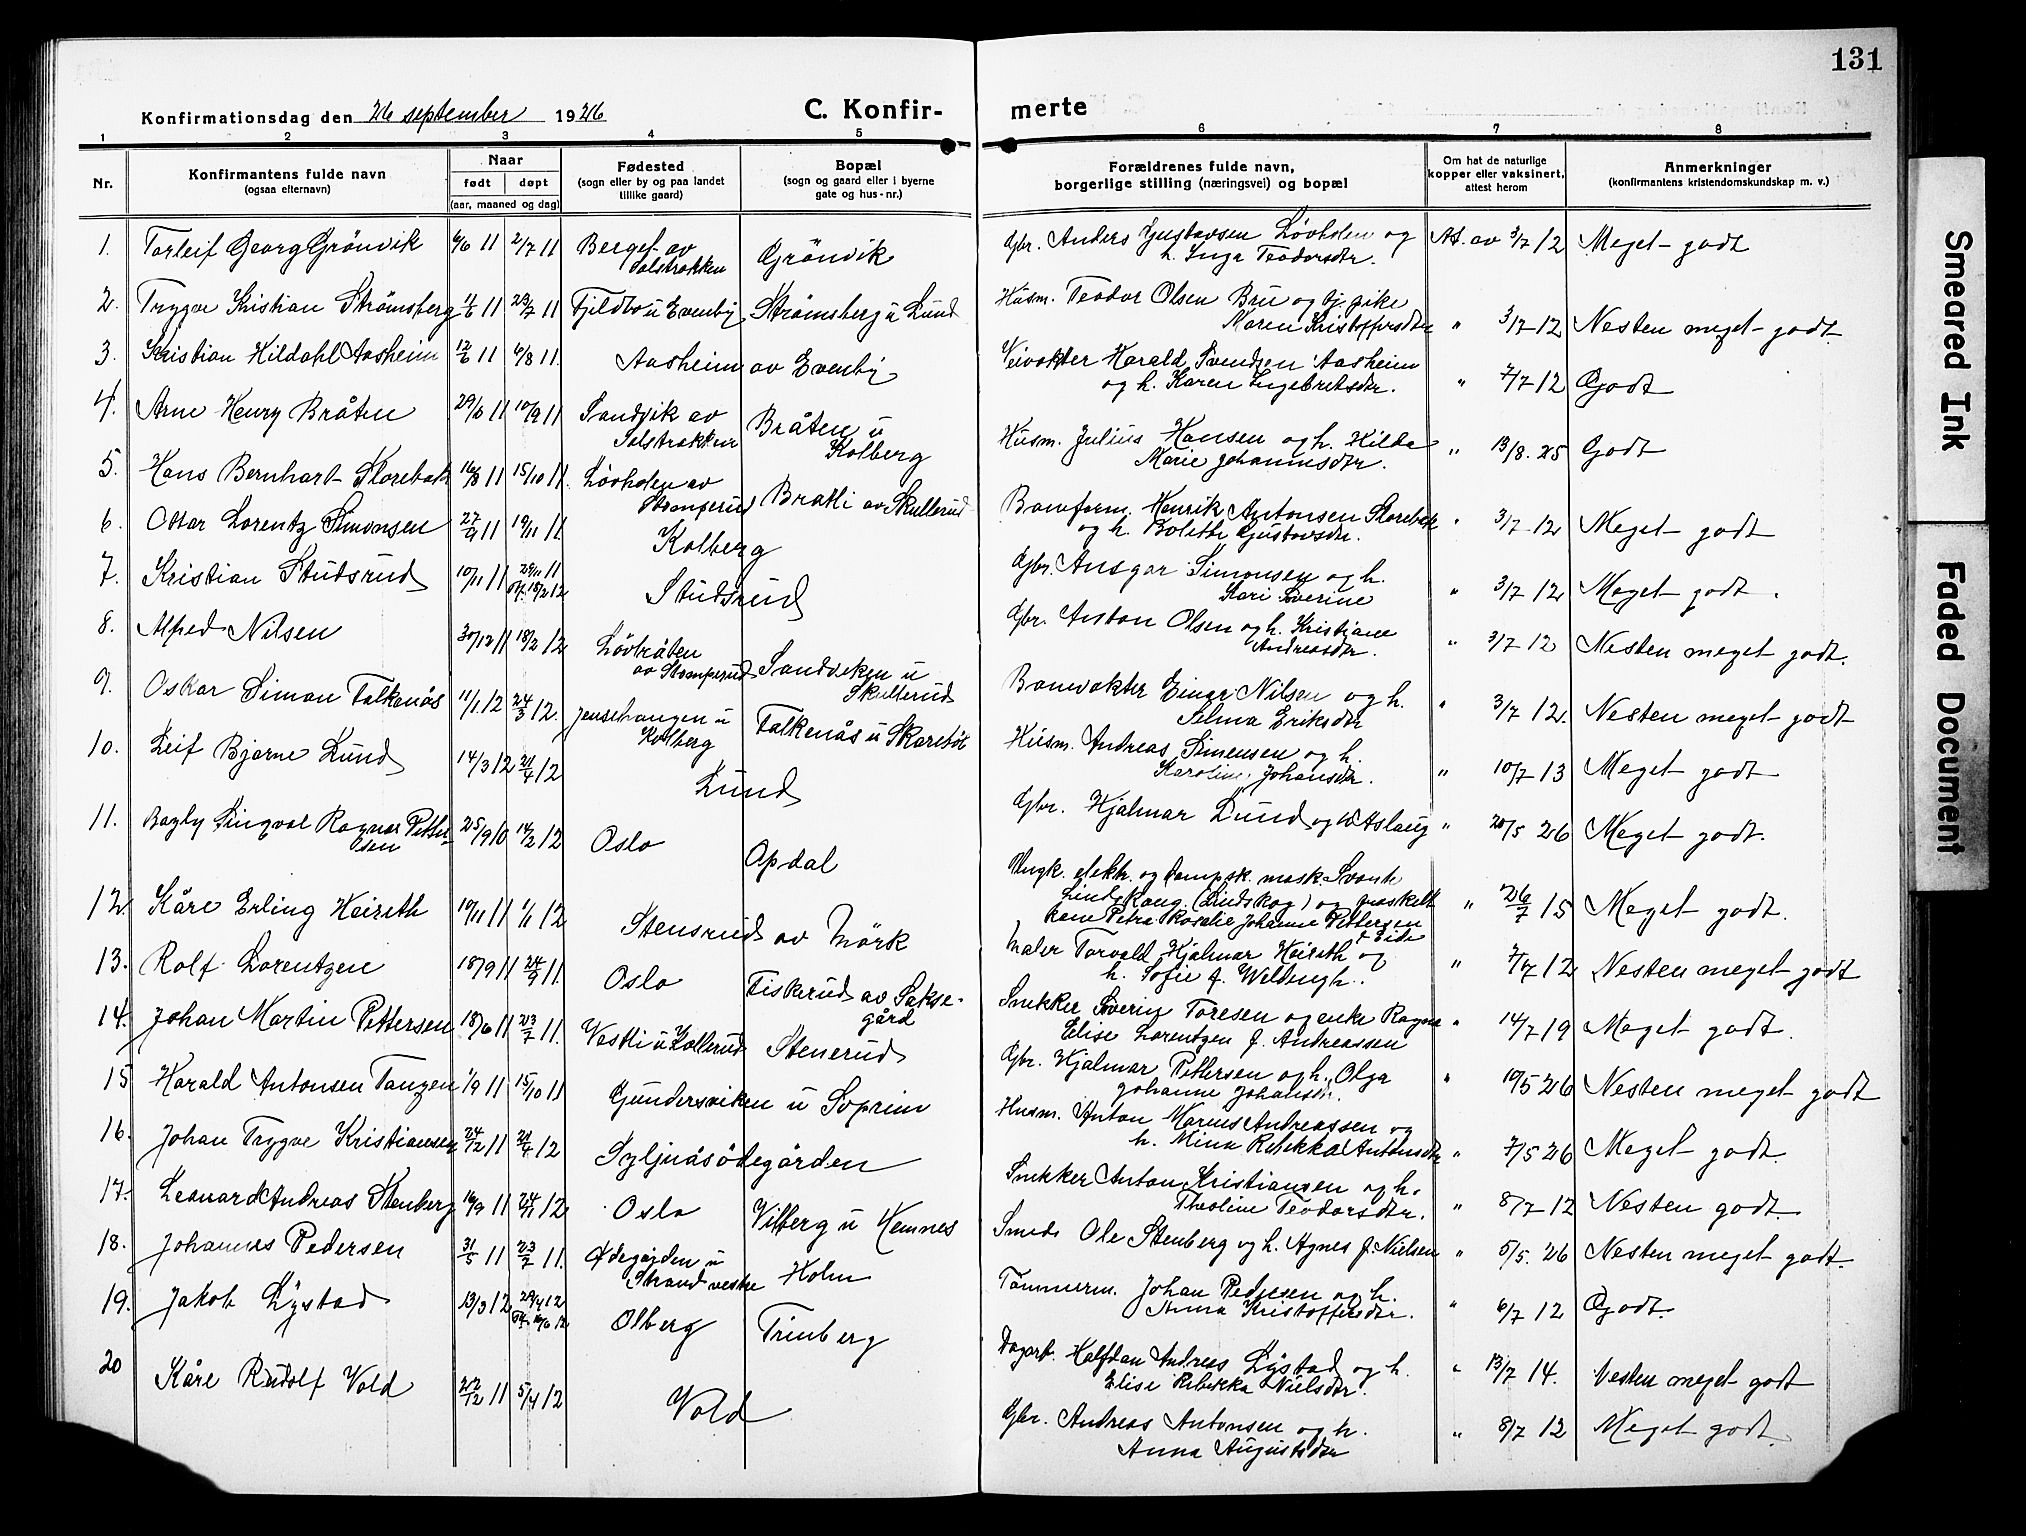 131
Konfirmationsdag den 26 september 1926
C. Konfirmerte
1 2 3 4 5 6 7 8
Nr.
Konfirmantens fulde navn
(ogsaa efternavn)
Naar
født døpt
(aar, maaned og dag)
Fødested
(sogn eller by og paa landet
tillike gaard)
Bopæl
(sogn og gaard eller i byerne
gate og hus-nr.)
Forældrenes fulde navn,
borgerlige stilling (næringsvei) og bopæl
Om hat de naturlige
kopper eller vaksinert,
attest herom
Anmerkninger
(konfirmantens kristendomskundskap m. v.)
1. Torleif Georg Grönvik 6/6 11 2/7 11 Berget av Solstrakken Grönvik Gbr. Anders Gustavsen Lövholen og h. Inga Teodorsdtr. At. av 3/7 12 Meget godt
2. Trygve Kristian Strömsberg 11 23/7 11 Fjeldbo u Evenby Strömsberg u Lund Husm. Teodor Olsen Bru og pike Maren Kristoffersdtr " 3/7 12 Nesten meget godt.
3. Kristian Hildahl Aasheim 12/6 11 6/8 11. Aasheim av Evenby Veivokter Harald Svendsen Aasheim og h. Karen Ingebretsdtr. " 7/7 12 Godt
4. Arne Henry Bråten 29/6 11 10/9 11 Sandvik av Solstrakken Bråten u Kolberg Husm. Julius Hansen og h. Hilda Marie Johannesdtr. " 13/8. 25 Godt
5. Hans Bernhart Storebæk 16/8 11 15/10 11. Lövholen av Stomperud Bratli av Skullerud Baneform. Henrik Antonsen Storebæk og h. Bolette Gustavsdtr. " 3/7 12 Meget godt
6. Ottar Lorentz Simonsen 27/9 11 19/11 11. Kolberg Gbr. Ansgar Simonsen og h. Kari Severine " 3/7 12 Meget godt.
7. Kristian Studsrud 10/11 11 11 18/2 12 Studsrud Gbr. Anton Olsen og h. Kristiane Andreasdtr. " 3/7 12 Nesten meget godt.
8. Alfred Nilsen 30/12 11 18/2 12 Lövbråten av Stomperud Sandviken u Skullerud Banevokter Einar Nilsen og h. Selma Eriksdtr " 3/7 12. Nesten meget godt
9. Oskar Simon Falkenås 11/1 12 24/3 12. Jensehaugen u Kolberg Falkenås u Skaretöt Husm. Andreas Simensen og h. Karoline Johansdtr. " 10/7 13 Meget godt
10. Leif Bjarne Lund 14/3 12 21/4 12 Lund Gbr. Hjalmar Lund og Aslaug " 20/5 26 Meget godt.
11. Bagly Ragnar Pettersen 25/9 10 14/2 12 Oslo Opdal Ungk. elektr. og dampsk. mask. Svante Lindskoug. (Lindskog) og fraskelt kone Petra Rosalie Johanne Pettersen f. Eide " 26/7 15 Meget godt.
12. Kåre Erling Heireth 19/11 11 1/1 12 Stensrud av Mörk Maler Torvald Hjalmar Heireth og h. Sofie f. Weldingh. " 7/7 12 Nesten meget godt
13. Rolf Lorentzen 18/9 11 24/9 11. Oslo Fiskerud av Saksegård Snekker Severin Toresen og enke Ragna Elise Lorentzen f. Andreassen " 14/7 19 Meget godt.
14. Johan Martin Pettersen 18/6 11 23/7 11. Vestli u Kollerud Stenerud Gbr. Hjalmar Pettersen og h. Olga Johanne Johansdtr. " 19/5 26 Nesten meget godt
15 Harald Antonsen Tangen 1/9 11 15/10 11 Gundersviken u Soprim Husm. Anton Marius Andreassen og h. Mina Rebekka Antonsdtr " 7/5 26 Meget godt.
16. Johan Trygve Kristiansen 24/12 11 21/4 12 Syljuåsödegården Snekker Anton Kristiansen og h. Theoline Teodorsdtr. " 8/7 12 Nesten godt.
17. Leonard Andreas Stenberg 16/9 11 24/11 12 Oslo Vilberg u Hemnes Smed Ole Stenberg og h. Agnes f. Nielsen " 5/5. 26 Nesten meget godt.
18. Johannes Pedersen 31/5 11 23/7 11. Ödegården u Strand vestre Holm Tömmerm. Johan Pedersen og h. Anna Kristoffersdtr. " 6/7 12 Godt.
19. Jakob Lystad 13/3 12 29/4 12 Olberg Trinberg Dagarb. Halfdan Andreas Lystad og h. Elise Rebekka Nielsdtr. " 13/7 14. Nesten meget godt
20 Kåre Rudolf Vold 22/12 11 5/4 12 Vold Gbr. Andreas Antonsen og h. Anna Augustsdtr " 8/7 12 Meget godt.
Smeared Ink
Faded Document